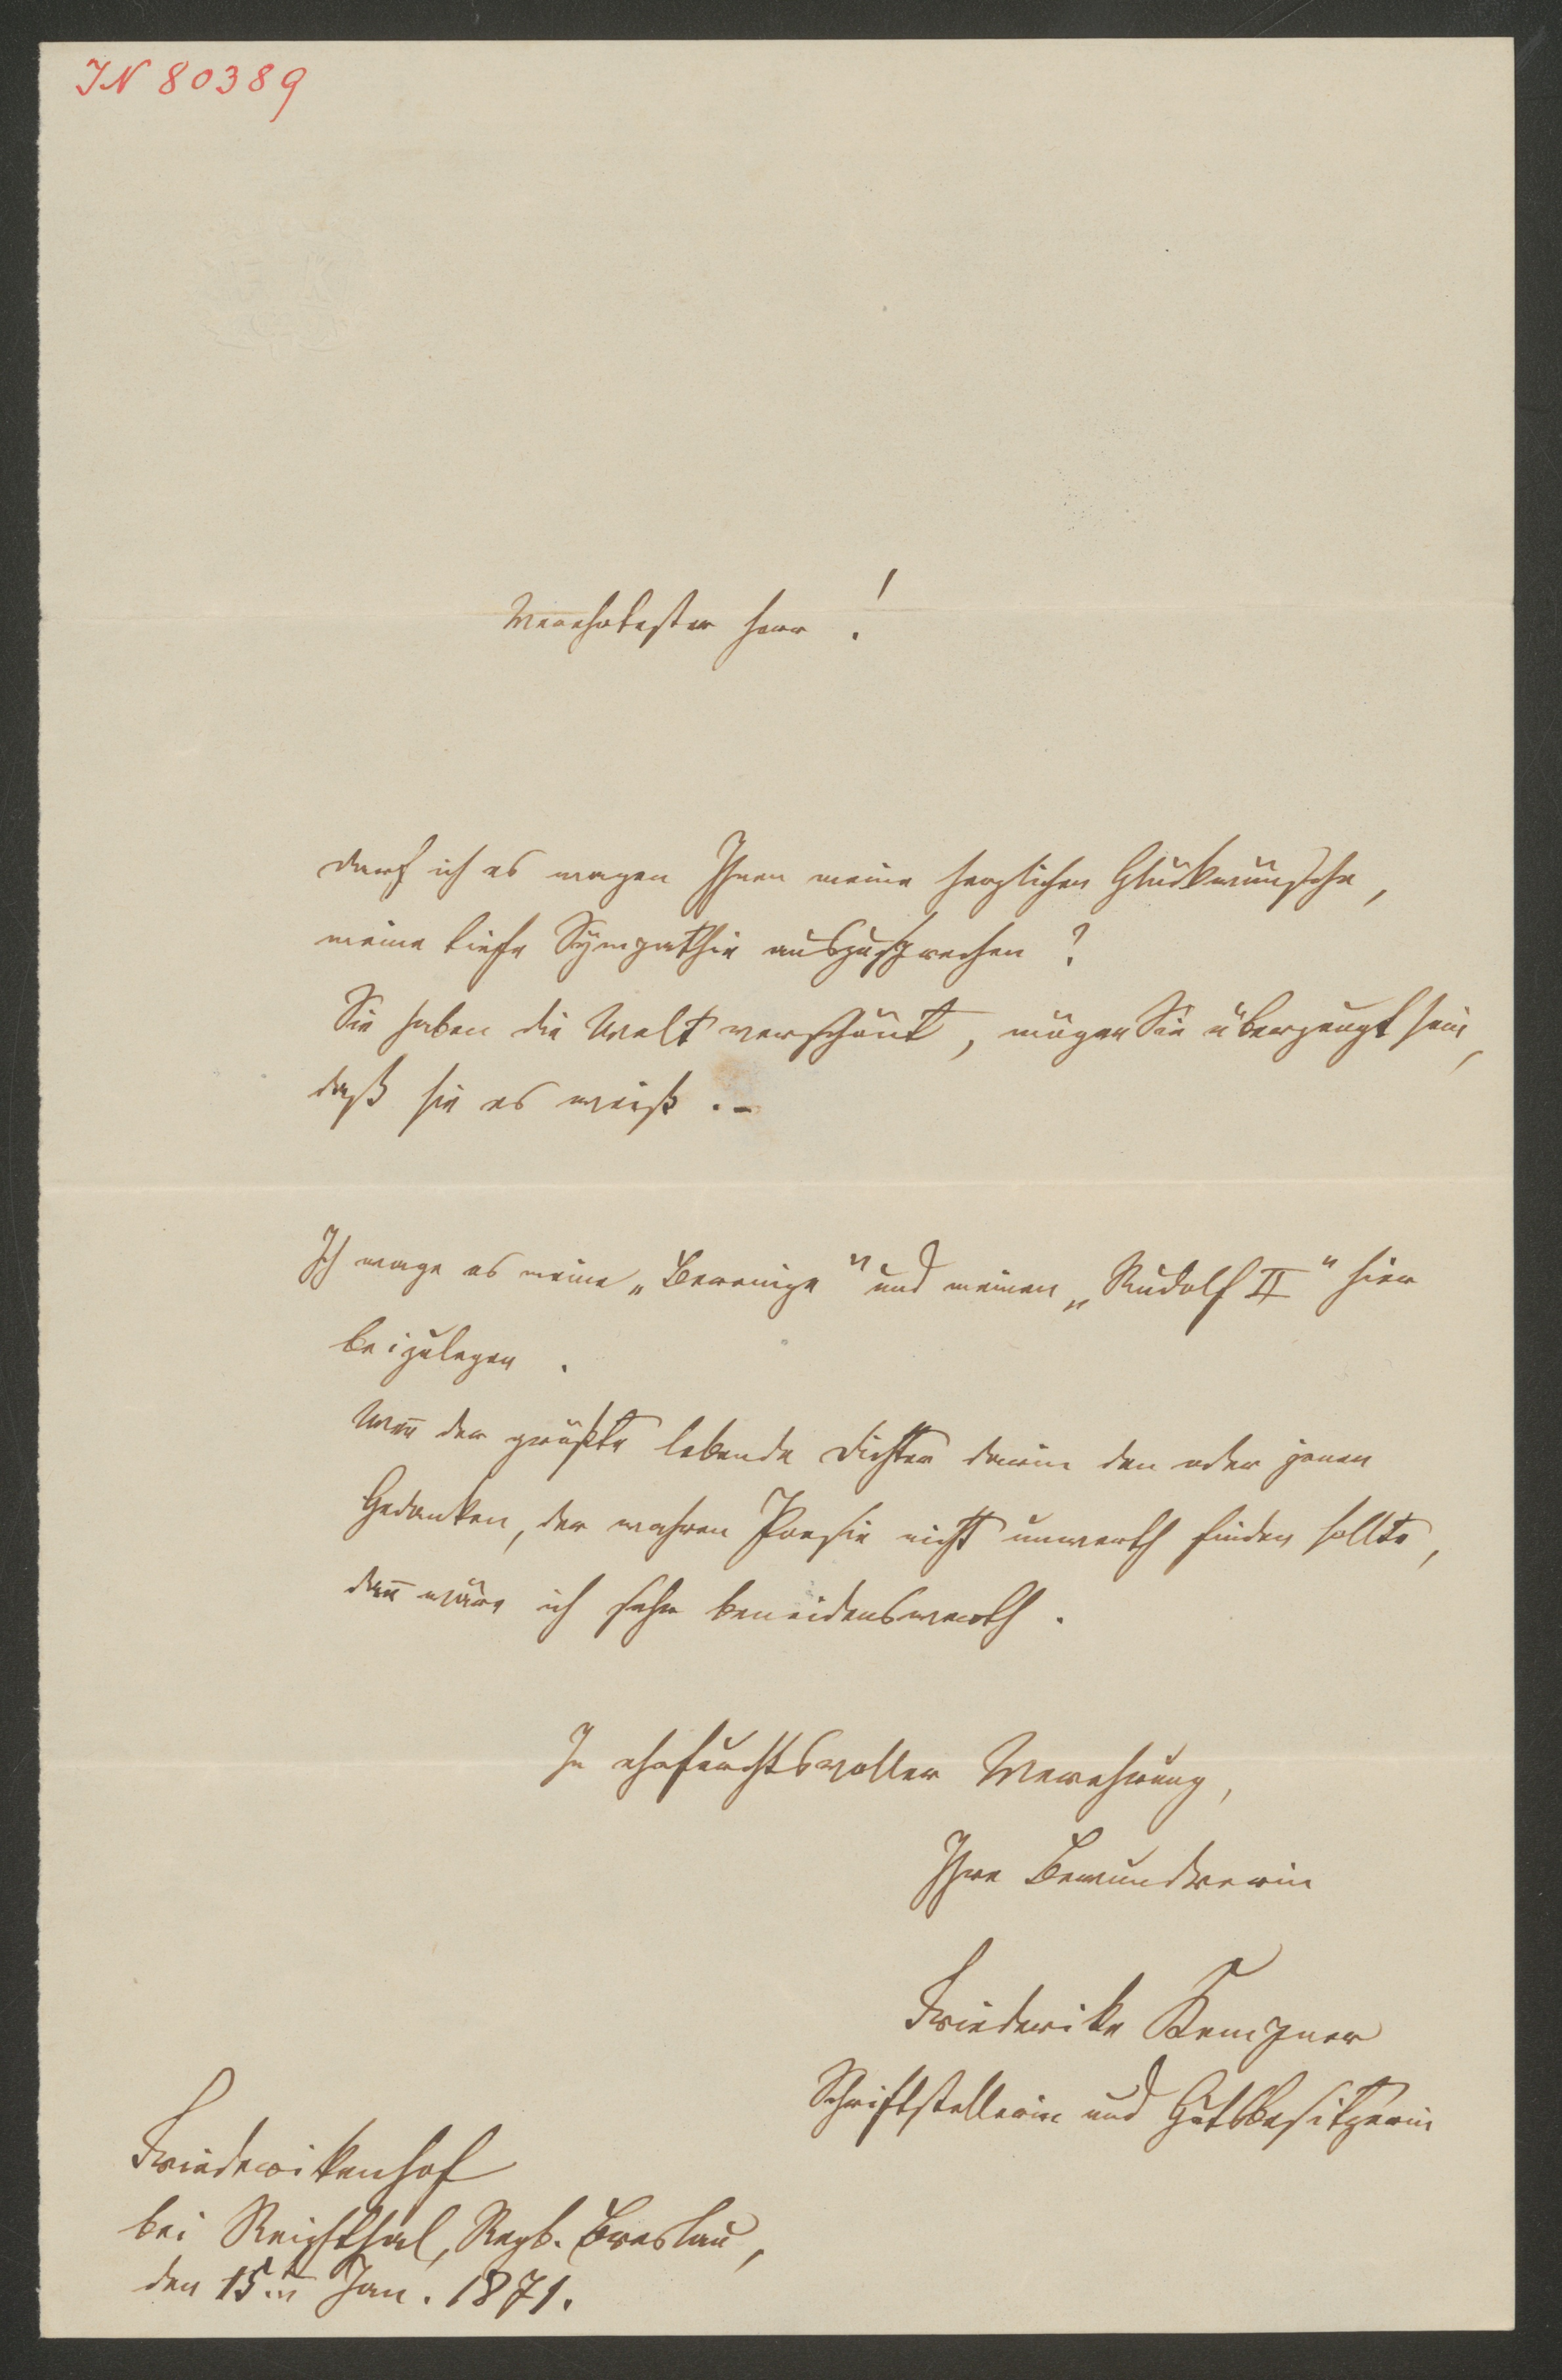 IN 80389
Verehrtester Herr!
darf ich es wagen Ihnen meine herzlichen Glückwünsche,
meine tiefe Sympathie auszusprechen?
Sie haben die Welt verschönt, mögen Sie überzeugt sein,
daß sie es weiß.-
Ich wage es meine „Berenize" und meinen „Rudolf II" hier
beizulegen.
Wen̅ der größte lebende Dichter darin den oder jenen
Gedanken, der wahren Poesie nicht unwerth finden sollte,
dan̅ wäre ich sehr beneidenswerth.
In ehrfurchtsvoller Verehrung,
Ihre Bewundrerin
Friederike Kempner
Schriftstellerin und Gutsbesitzerin
Friederikenhof
bei Reichthal, Regb. Breslau,
den 15ten Jan. 1871.